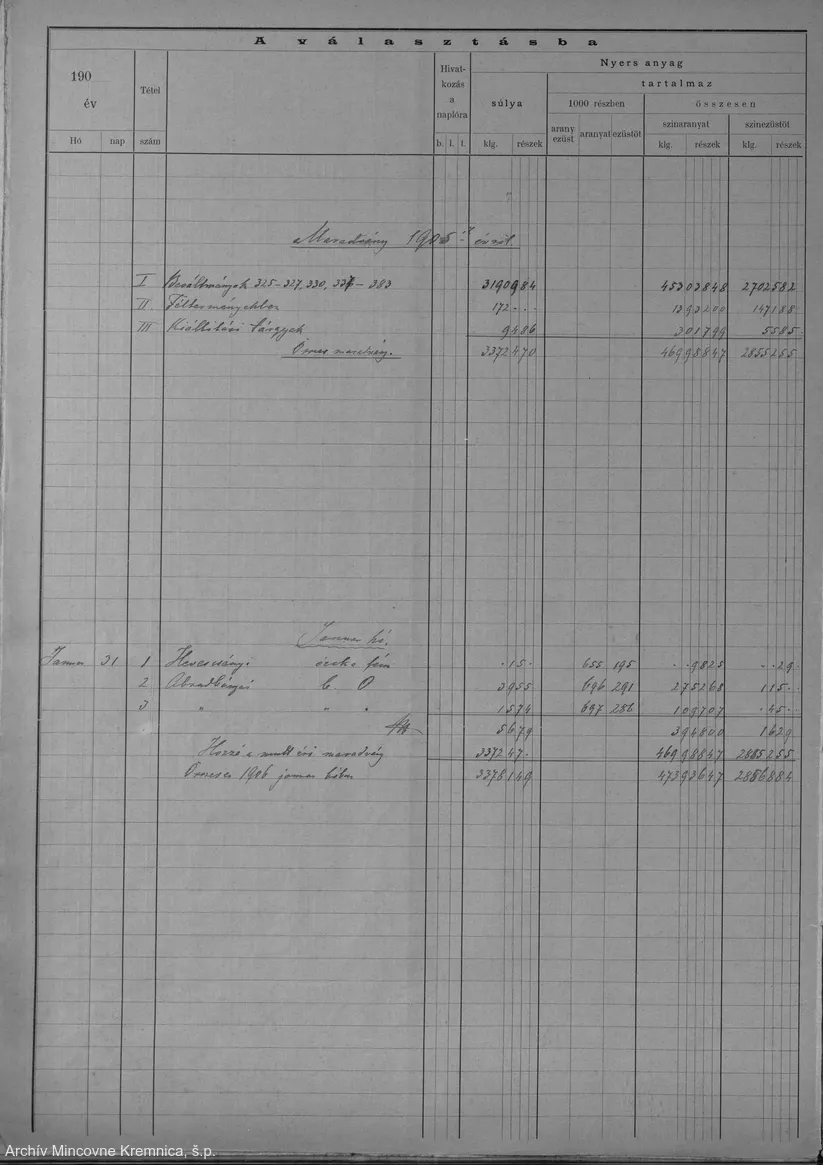 A választásba
190
év
Hó nap
Tétel
szám
Hivat-
kozás
a
naplóra
b. l. t.
Nyers anyag
súlya
klg. részek
tartalmaz
1000 részben
arany
ezüst
aranyat ezüstöt
összesen
színaranyat
klg. részek
színezüstöt
klg. részek
Maradvány 1905 évről
I Beváltmányok 325-327, 330, 337-383 3190984 45303848 2702582
II. 172 1393200 147188
III Kiállítási tárgyak 9486 301799 5585
Összes maradvány. 3372470 46998847 2855255
Január hó.
Január 31 1 15 655 195 9825 29
2 3955 696 291 275268 115
3 " " " 1574 697 286 109707 45
5679 394800 1629
Hozzá a múlt évi maradvány 337247 46998847 2885255
Összesen 1906 január 3378149 47393647 2886884
Archív Mincovne Kremnica, š.p.